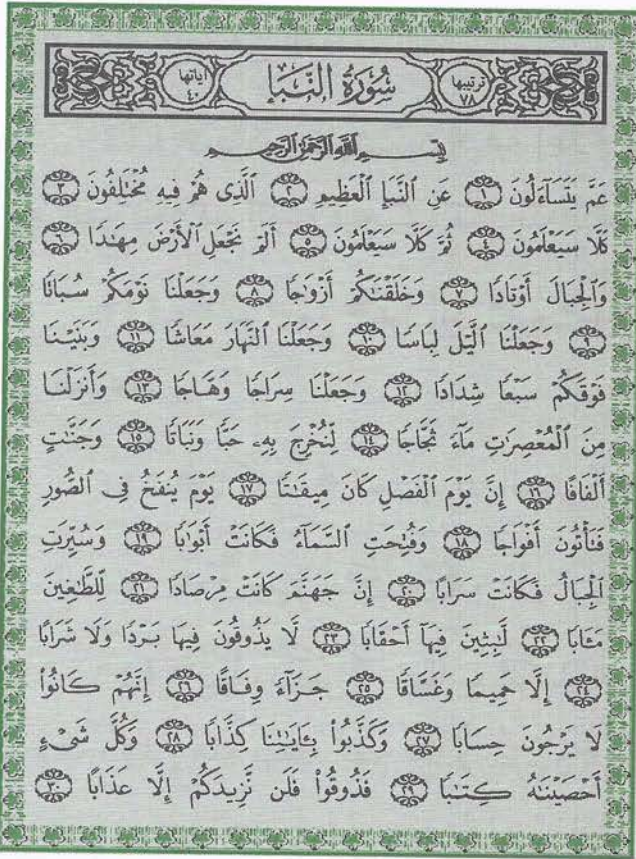 ترتيبها ٧٨ سُورَةُ النَّبَإِ اياتها ٤٠
بِسْمِ اللَّهِ الرَّحْمَٰنِ الرَّحِيمِ
عَمَّ يَتَسَآءَلُونَ ١ عَنِ النَّبَإِ الْعَظِيمِ ٢ الَّذِى هُمْ فِيهِ مُخْتَلِفُونَ ٣
كَلَّا سَيَعْلَمُونَ ٤ ثُمَّ كَلَّا سَيَعْلَمُونَ ٥ أَلَمْ نَجْعَلِ الْأَرْضَ مِهَٰدًا ٦
وَالْجِبَالَ أَوْتَادًا ٧ وَخَلَقْنَٰكُمْ أَزْوَٰجًا ٨ وَجَعَلْنَا نَوْمَكُمْ سُبَاتًا
٩ وَجَعَلْنَا الَّيْلَ لِبَاسًا ١٠ وَجَعَلْنَا النَّهَارَ مَعَاشًا ١١ وَبَنَيْنَا
فَوْقَكُمْ سَبْعًا شِدَادًا ١٢ وَجَعَلْنَا سِرَاجًا وَهَّاجًا ١٣ وَأَنزَلْنَا
مِنَ الْمُعْصِرَٰتِ مَآءً ثَجَّاجًا ١٤ لِّنُخْرِجَ بِهِۦ حَبًّا وَنَبَاتًا ١٥ وَجَنَّٰتٍ
أَلْفَافًا ١٦ إِنَّ يَوْمَ الْفَصْلِ كَانَ مِيقَٰتًا ١٧ يَوْمَ يُنفَخُ فِى الصُّورِ
فَتَأْتُونَ أَفْوَاجًا ١٨ وَفُتِحَتِ السَّمَآءُ فَكَانَتْ أَبْوَٰبًا ١٩ وَسُيِّرَتِ
الْجِبَالُ فَكَانَتْ سَرَابًا ٢٠ إِنَّ جَهَنَّمَ كَانَتْ مِرْصَادًا ٢١ لِّلطَّٰغِينَ
مَـَٔابًا ٢٢ لَّٰبِثِينَ فِيهَآ أَحْقَابًا ٢٣ لَّا يَذُوقُونَ فِيهَا بَرْدًا وَلَا شَرَابًا
٢٤ إِلَّا حَمِيمًا وَغَسَّاقًا ٢٥ جَزَآءً وِفَاقًا ٢٦ إِنَّهُمْ كَانُوا۟
لَا يَرْجُونَ حِسَابًا ٢٧ وَكَذَّبُوا۟ بِـَٔايَٰتِنَا كِذَّابًا ٢٨ وَكُلَّ شَىْءٍ
أَحْصَيْنَٰهُ كِتَٰبًا ٢٩ فَذُوقُوا۟ فَلَن نَّزِيدَكُمْ إِلَّا عَذَابًا ٣٠